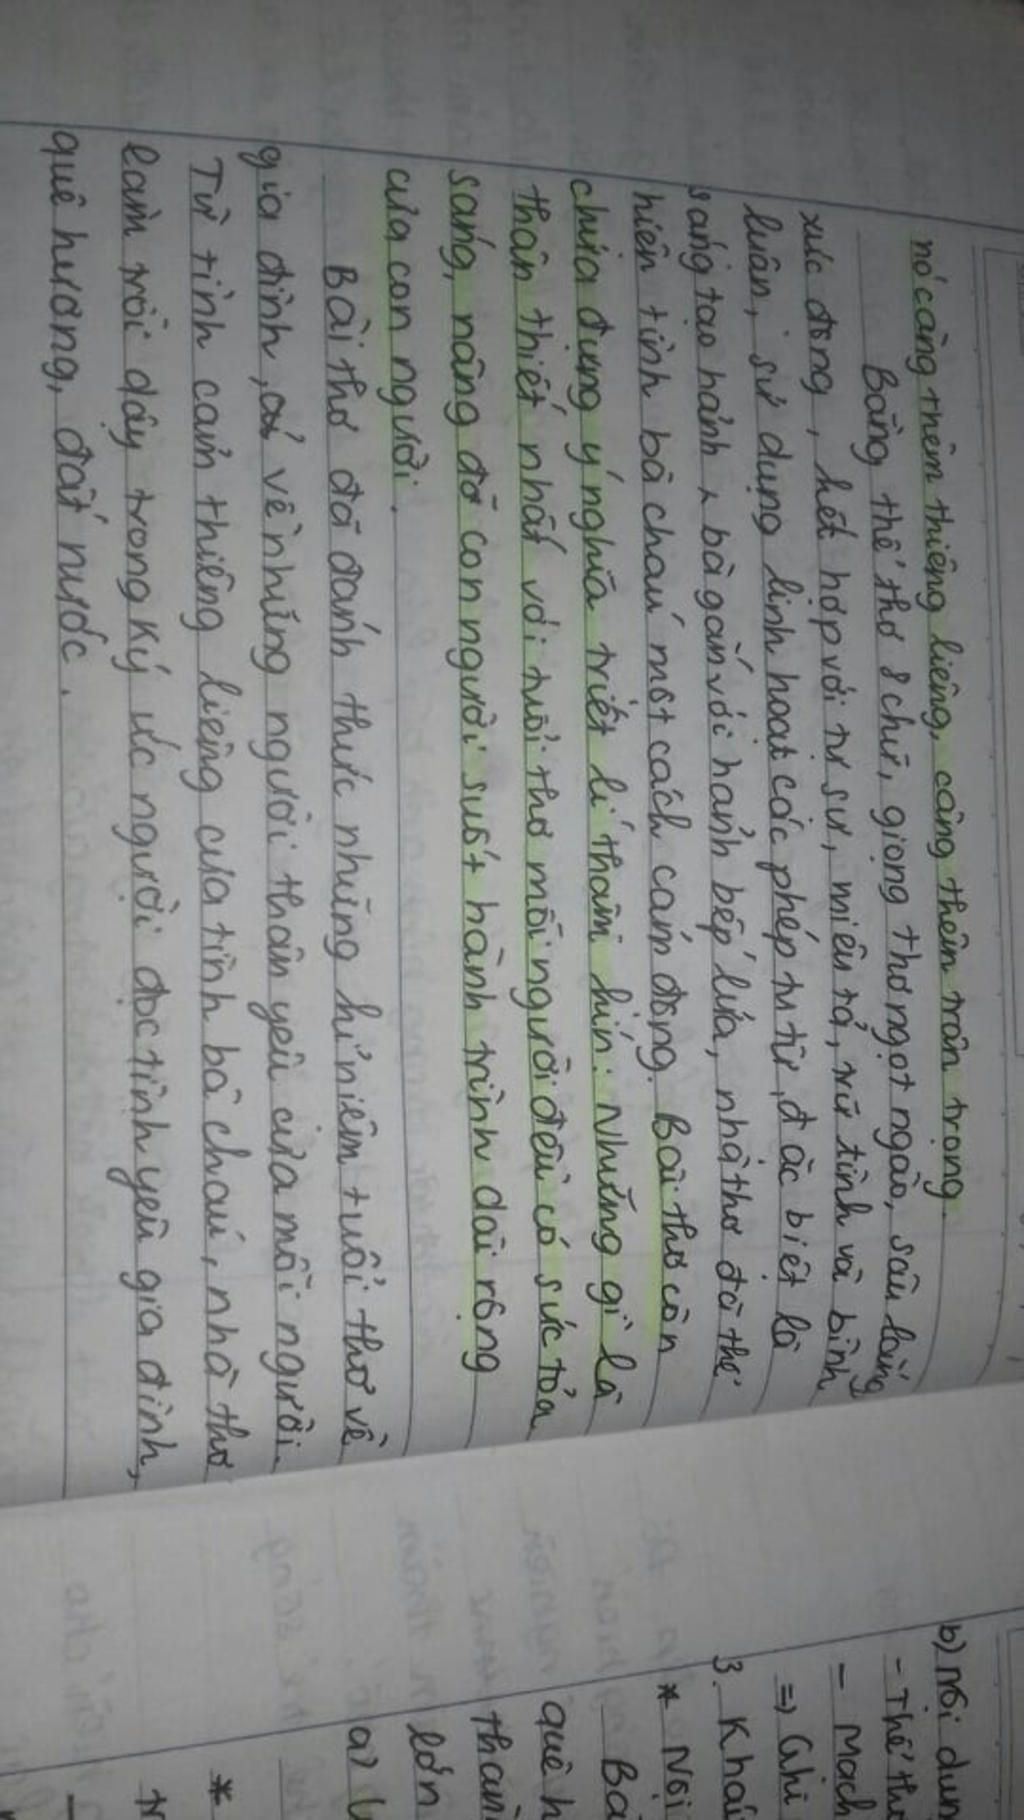 nó càng thêm thiêng liêng, càng thêm trân trọng.
Bằng thể thơ 8 chữ, giọng thơ ngọt ngào, sâu lắng
xúc động, kết hợp với tự sự, miêu tả, trữ tình và bình
luận, sử dụng linh hoạt các phép tu từ, đặc biệt là
sáng tạo hảnh bà gắn với hảnh bếp lửa, nhà thơ đã thể
hiện tình bà cháu một cách cảm động. Bài thơ còn
chứa đựng ý nghĩa triết lí thầm kín: Những gì là
thân thiết nhất với tuổi thơ mỗi người đều có sức tỏa
sáng, nâng đỡ con người suốt hành trình dài rộng
của con người.
Bài thơ đã đánh thức những kỉ niệm tuổi thơ về
gia đình, về những người thân yêu của mỗi người.
Từ tình cảm thiêng liêng của tình bà cháu, nhà thơ
làm trỗi dậy trong ký ức người đọc tình yêu gia đình,
quê hương, đất nước.
b) Nội dun
- Thể th
- Mạch
=> Ghi
3. Khái
* Nội
Bà
quê h
thàn
lớn
a)
*